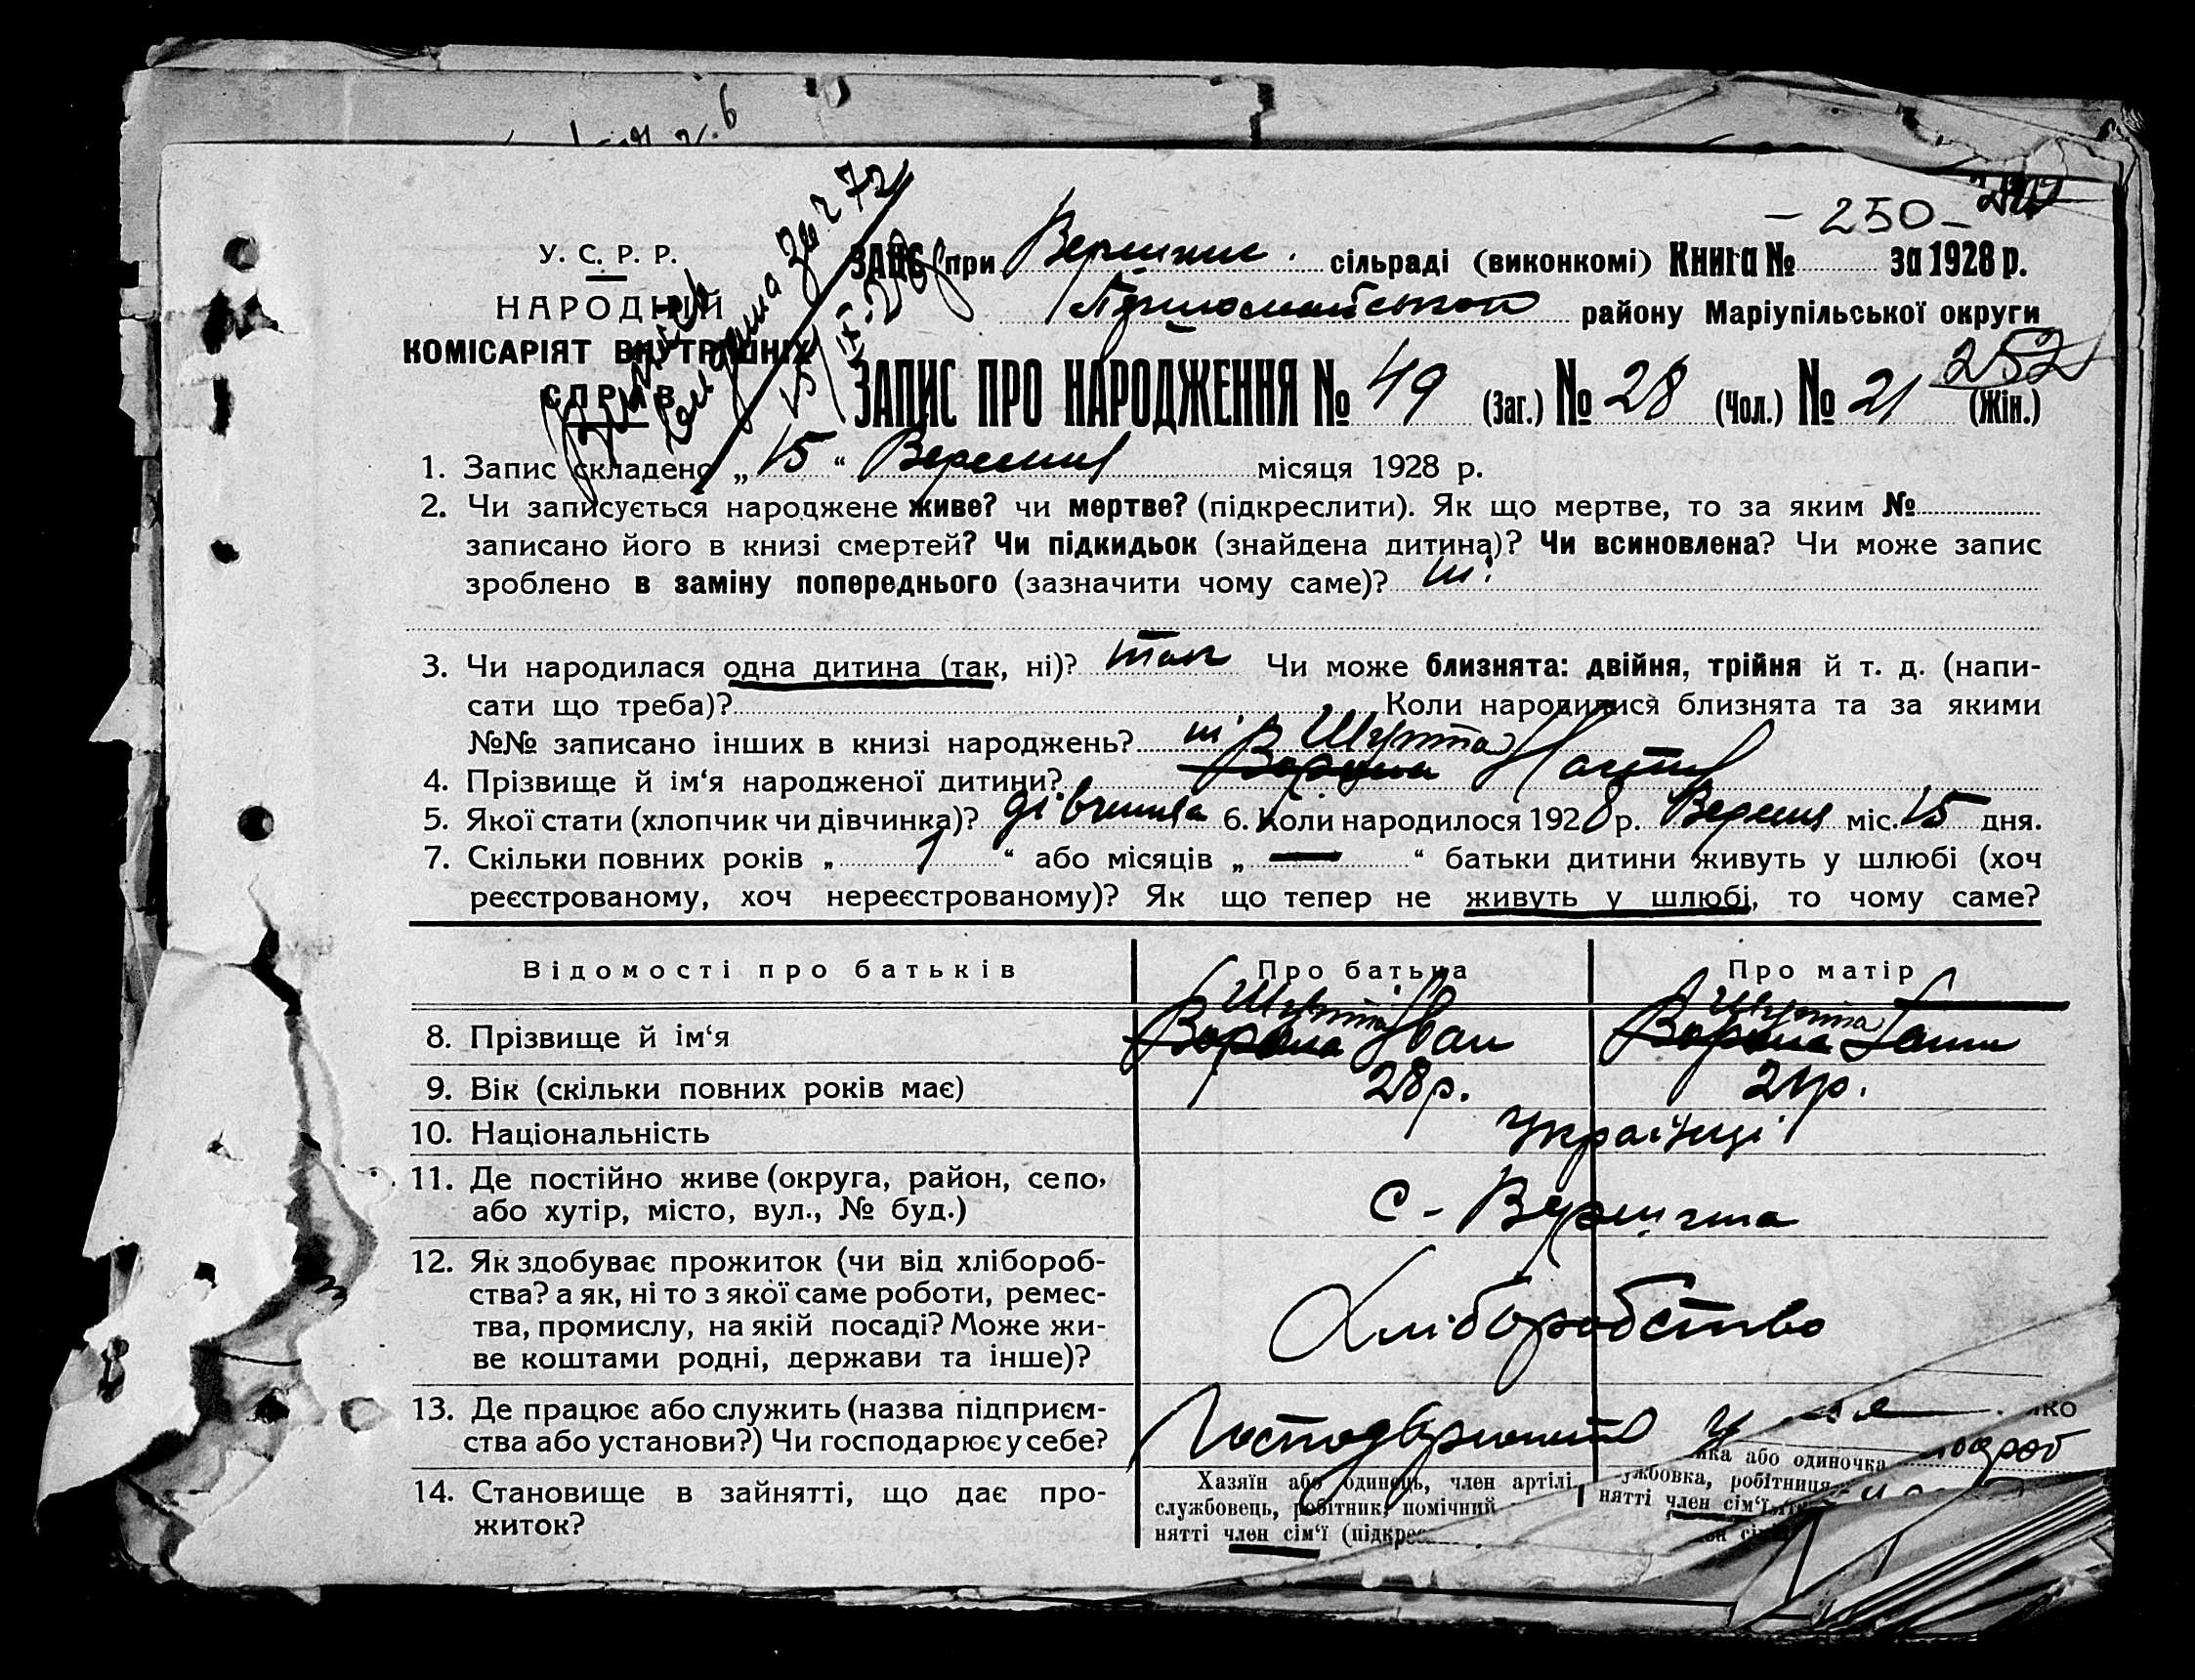 - 250 -
У. С. Р. Р.
НАРОДНІЙ
КОМІСАРІЯТ ВНУТРІШНІХ
СПРАВ
ЗАГС при сільраді (виконкомі) Книга № за 1928 р.
району Маріупільської округи
252
ЗАПИС ПРО НАРОДЖЕННЯ № 49 (Заг.) № 28 (Чол.) № 21 (Жін.)
1. Запис складено „ 15 “ Вересния місяця 1928 р.
2. Чи записується народжене живе? чи мертве? (підкреслити). Як що мертве, то за яким №
записано його в книзі смертей? Чи підкидьок (знайдена дитина)? Чи всиновлена? Чи може запис
зроблено в заміну попереднього (зазначити чому саме)? ні
3. Чи народилася одна дитина (так, ні)? так Чи може близнята: двійня, трійня й т. д. (напи-
сати що треба)? Коли народилися близнята та за якими
№№ записано інших в книзі народжень? ні
4. Прізвище й ім‘я народженої дитини? Шупта Настя
5. Якої стати (хлопчик чи дівчинка)? дівчинка 6. Коли народилося 1928 р. Вересня міс. 15 дня.
7. Скільки повних років „ 1 “ або місяців „ — “ батьки дитини живуть у шлюбі (хоч
реєстрованому, хоч нереєстрованому)? Як що тепер не живуть у шлюбі, то чому саме?
Відомості про батьків Про батька Про матір
8. Прізвище й ім‘я Шупта Іван Шупта Ганна
9. Вік (скільки повних років має) 28 р. 21 р.
10. Національність Українці
11. Де постійно живе (округа, район, село,
або хутір, місто, вул., № буд.) С -
12. Як здобуває прожиток (чи від хлібороб-
ства? а як, ні то з якої саме роботи, ремес-
тва, промислу, на якій посаді? Може жи-
ве коштами родні, держави та інше)?
Хліборобство
13. Де працює або служить (назва підприєм-
ства або установи?) Чи господарює у себе?
14. Становище в зайнятті, що дає про-
житок?
Хазяїн або одинець, член артілі,
службовець, робітник, помічний
нятті член сім‘ї
або одиночка
робітниця
нятті член сім‘ї